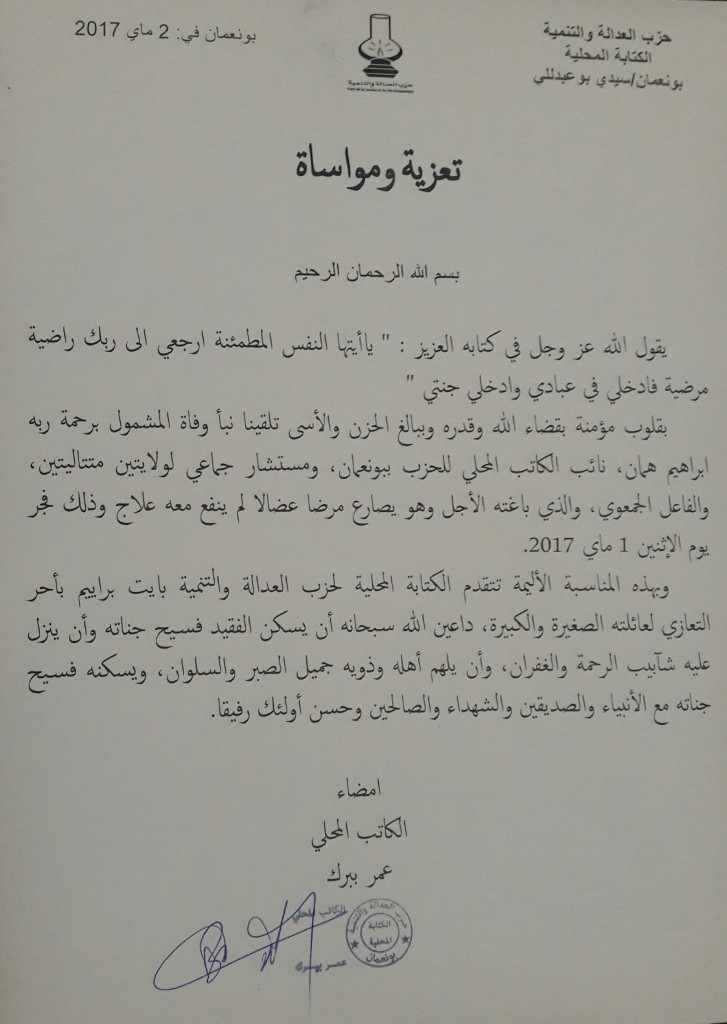 حزب العدالة والتنمية
الكتابة المحلية
بونعمان/سيدي بوعبدللي
بونعمان في: 2 ماي 2017
حزب العدالة والتنمية
Parti de la Justice et du Développement
تعزية ومواساة
بسم الله الرحمان الرحيم
يقول الله عز وجل في كتابه العزيز : " ياأيتها النفس المطمئنة ارجعي الى ربك راضية
مرضية فادخلي في عبادي وادخلي جنتي "
بقلوب مؤمنة بقضاء الله وقدره وببالغ الحزن والأسى تلقينا نبأ وفاة المشمول برحمة ربه
ابراهيم همان، نائب الكاتب المحلي للحزب ببونعمان، ومستشار جماعي لولايتين متتاليتين،
والفاعل الجمعوي، والذي باغته الأجل وهو يصارع مرضا عضالا لم ينفع معه علاج وذلك فجر
يوم الإثنين 1 ماي 2017.
وبهذه المناسبة الأليمة تتقدم الكتابة المحلية لحزب العدالة والتنمية بايت براييم بأحر
التعازي لعائلته الصغيرة والكبيرة، داعين الله سبحانه أن يسكن الفقيد فسيح جناته وأن ينزل
عليه شآبيب الرحمة والغفران، وأن يلهم أهله وذويه جميل الصبر والسلوان، ويسكنه فسيح
جناته مع الأنبياء والصديقين والشهداء والصالحين وحسن أولئك رفيقا.
امضاء
الكاتب المحلي
عمر ببرك
الكاتب المحلي
حزب العدالة والتنمية
الكتابة
المحلية
بونعمان
عمر